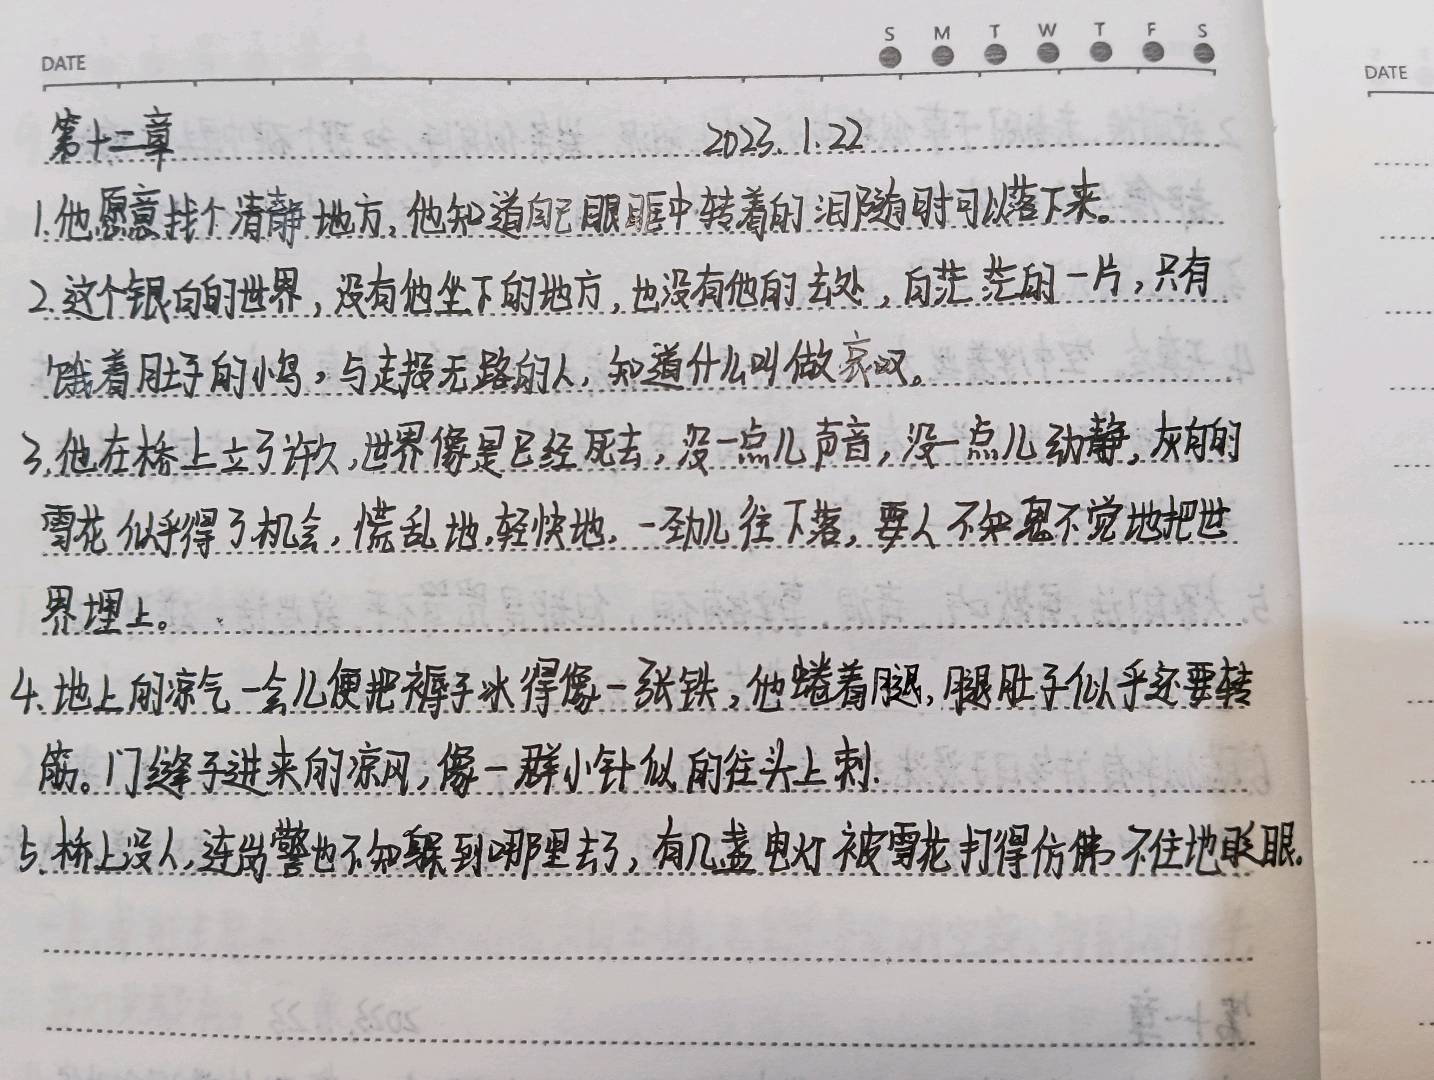 DATE
S M T W T F S
DATE
第十二章 2023.1.22
1.他愿意找个清静地方,他知道自己眼眶中转着的泪随时可以落下来。
2.这个银白的世界,没有他坐下的地方,也没有他的去处,白茫茫的一片,只有
饿着肚子的小鸟,与走投无路的人,知道什么叫做哀叹。
3.他在桥上立了许久,世界像是已经死去,没一点儿声音,没一点儿动静,灰白的
雪花似乎得了机会,慌乱地,轻快地,一劲儿往下落,要人不知鬼不觉地把世
界埋上。
4.地上的凉气一会儿便把褥子冰得像一张铁,他蜷着腿,腿肚子似乎还要转
筋。门缝子进来的凉风,像一群小针似的往头上刺.
5.桥上没人,连岗警也不知躲到哪里去了,有几盏电灯被雪花打得仿佛不住地眨眼.